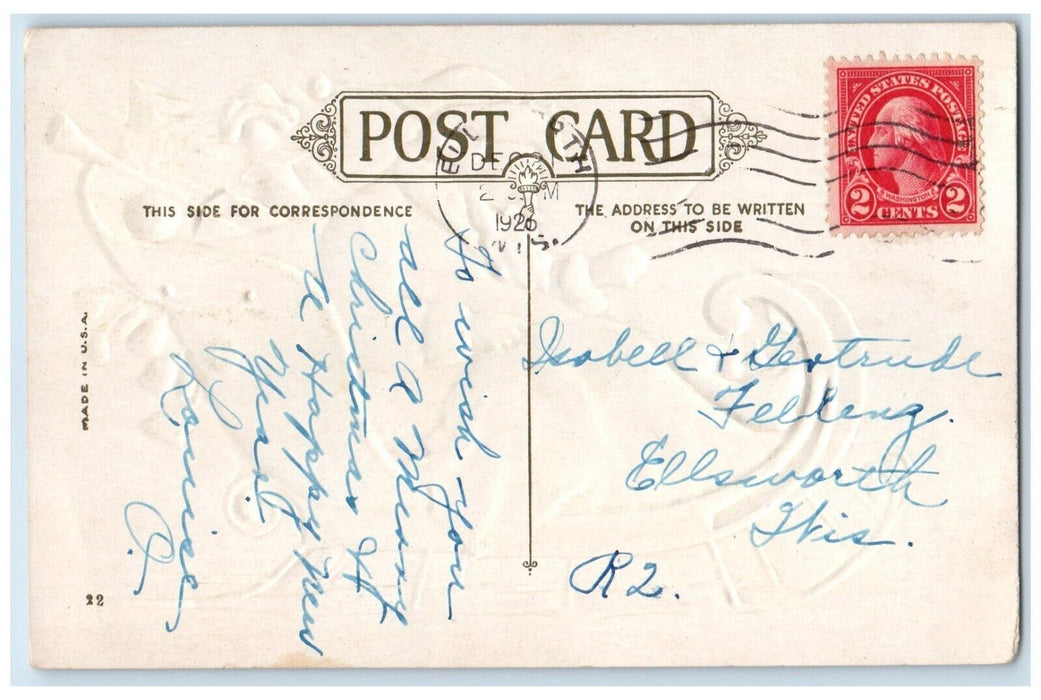 POST CARD
THIS SIDE FOR CORRESPONDENCE
THE ADDRESS TO BE WRITTEN
ON THIS SIDE
UNITED STATES POSTAGE
WASHINGTON
2 CENTS 2
1926
WIS.
MADE IN U.S.A.
22
To wish you
all a Merry
Christmas &
a Happy New
Year.
Louise
C.
Isabell & Gertrude
Felling.
Ellsworth
Wis.
R2.